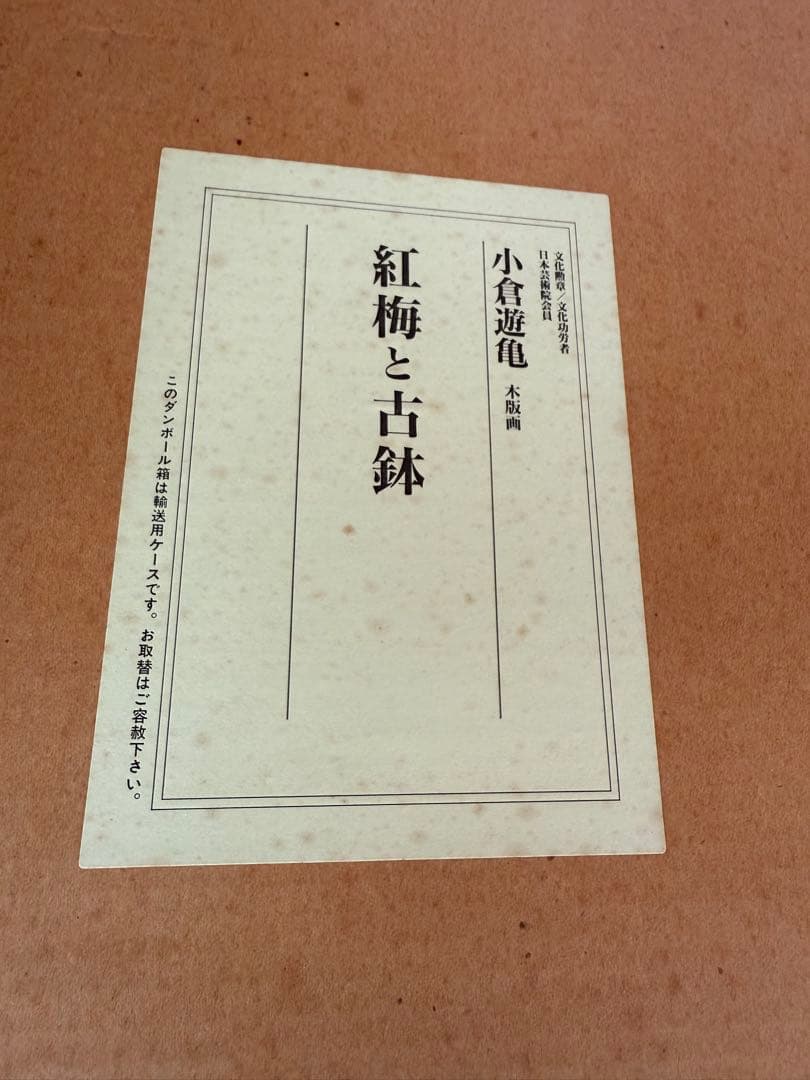 文化勲章／文化功労者
日本芸術院会員
小倉遊亀 木版画
紅梅と古鉢
このダンボール箱は輸送用ケースです。お取替はご容赦下さい。